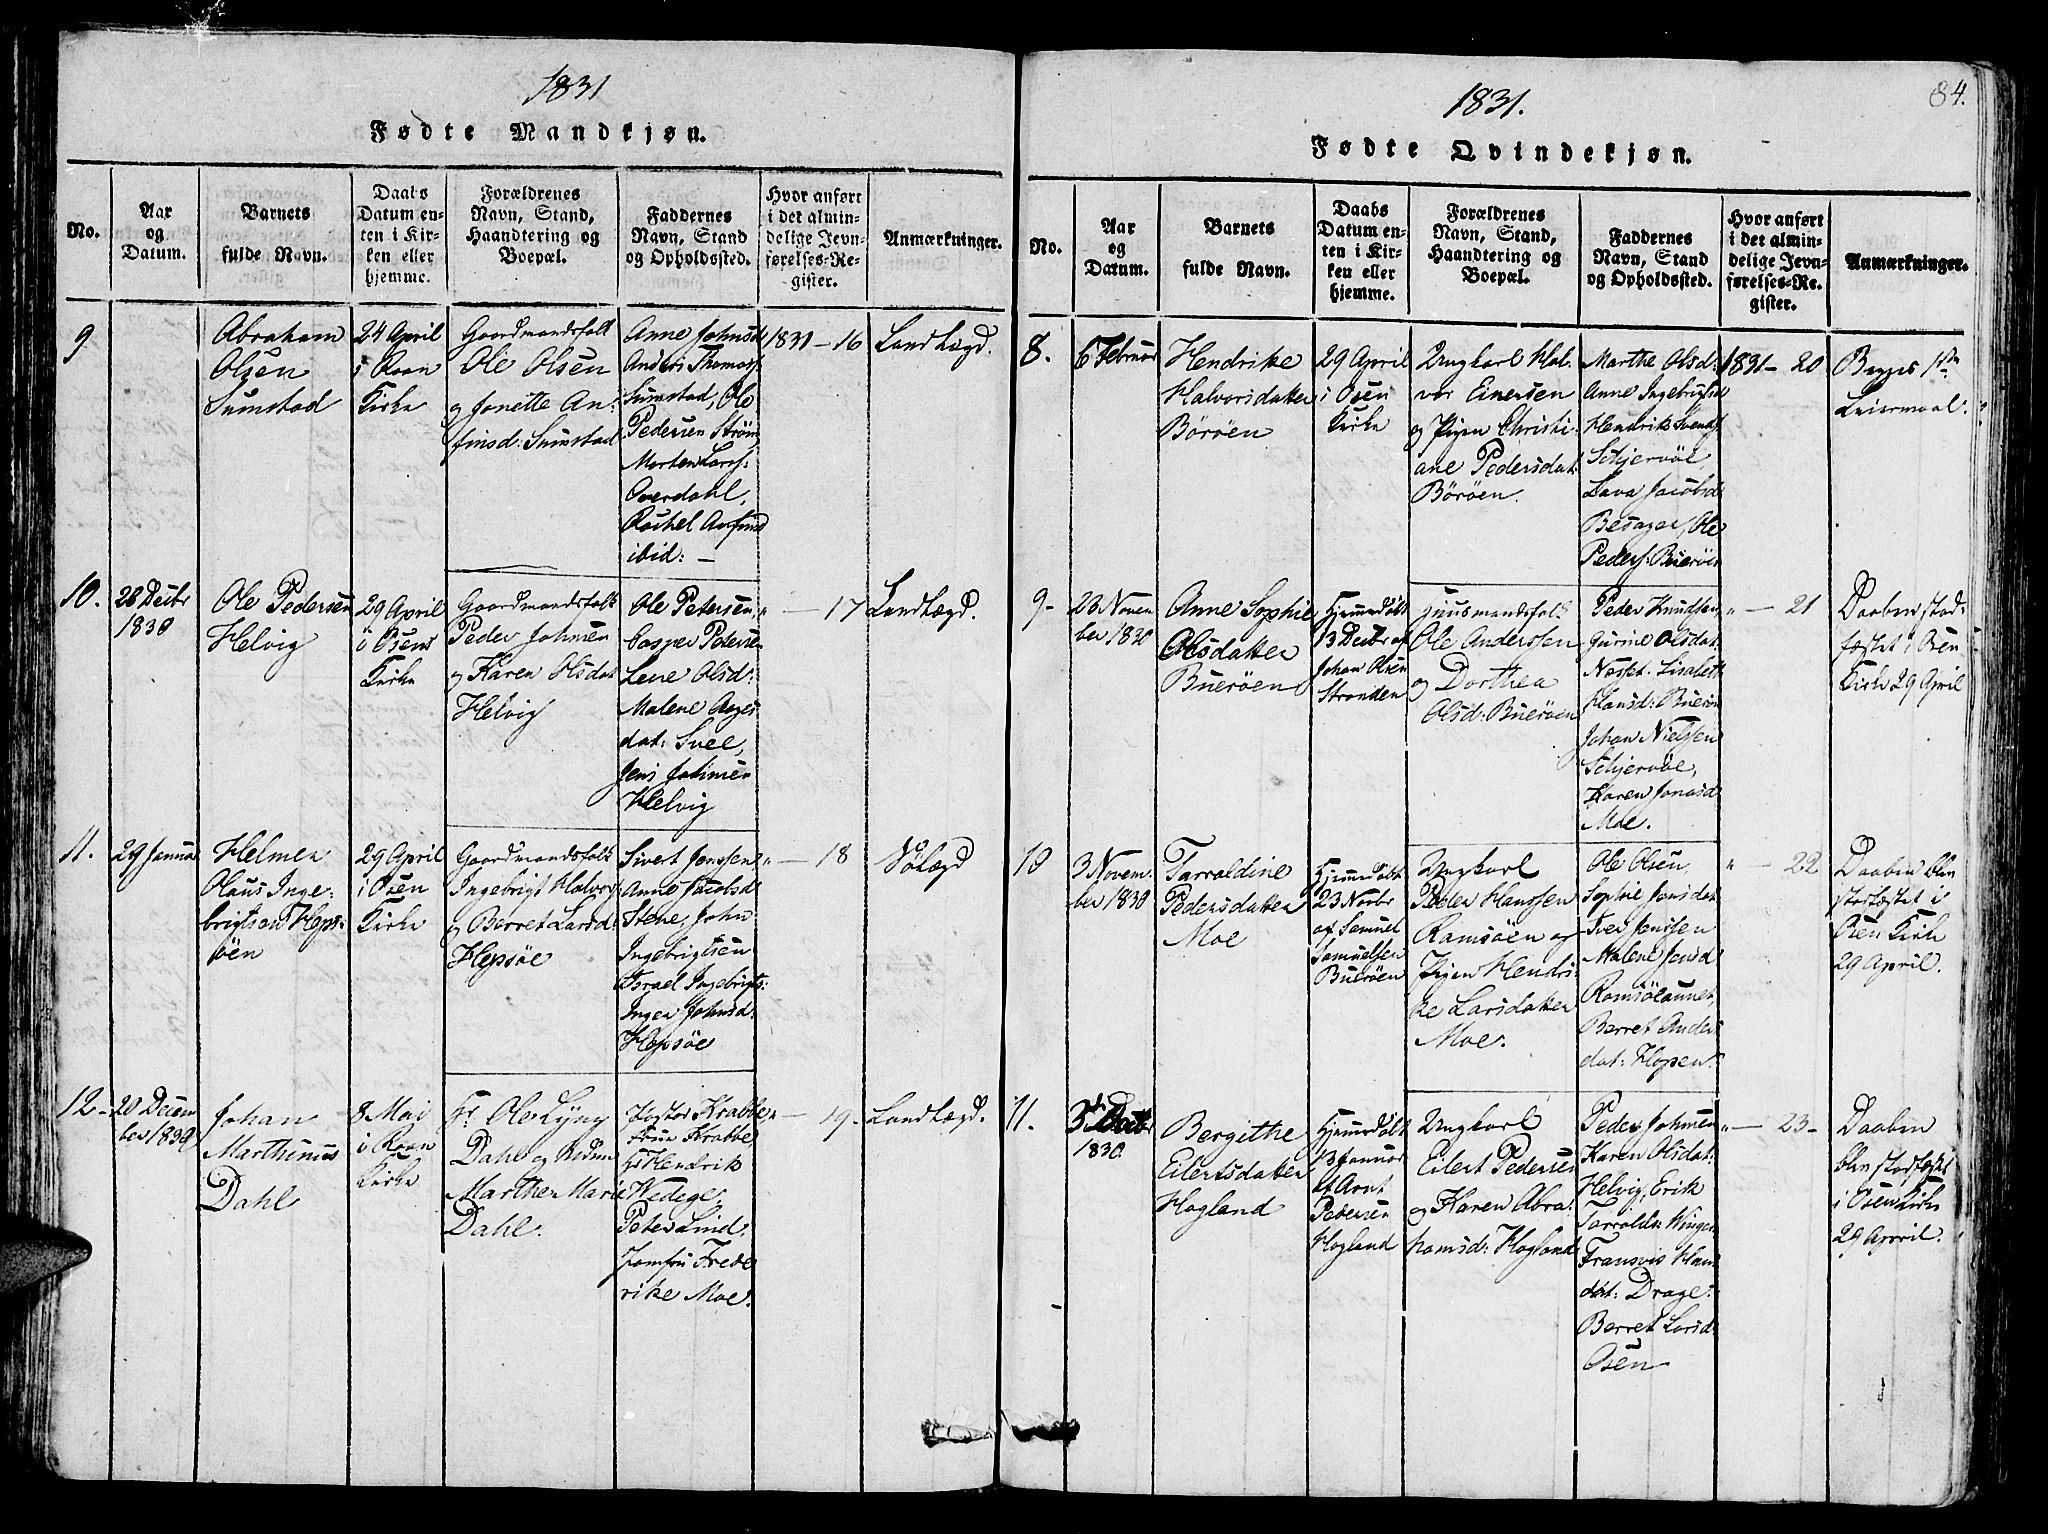 1831
Fødte Mandkjøn.
No.
Aar
og
Datum.
Barnets
fulde Navn.
Daabs
Datum en-
ten i Kir-
ken eller
hjemme.
Forældrenes
Navn, Stand,
Haandtering og
Boepæl.
Faddernes
Navn, Stand
og Opholdssted.
Hvor anført
i det almin-
delige Jevn-
førelses-Re-
gister.
Anmærkninger.
9
Abraham
Olsen
Sumstad
24 April
i Roan
Kirke
Gaardmandsfolk
Ole Olsen
og Jonette An-
finsd: Sumstad
Anne Johnsd
Anders Thomas:
Sumstad, Ole
Pedersen Strøm
Morten Lars:
Overdahl,
Rachel Anfind
ibid: —
1831 — 16
Landlægd.
10.
28 Decbr
1830
Ole Pedersen
Helvig
29 April
i Osens
Kirke
Gaardmandsfolk
Peder Johnsen
og Karen Olsdat
Helvig
Ole Petersen,
Casper Peterse
Lene Olsd:
Malene Aages
dat: Svee,
Jens Johnsen
Helvig
" — 17
Landlægd.
11.
29 Januar
Helmer
Olaus Inge-
brigtsen Heps-
öen
29 April
i Osen
Kirke
Gaardmandsfolk
Ingebrigt Halvors
og Berret Larsd:
Hepsøe
Sivert Jenssen,
Anne Jacobsd
Stene, John
Ingebrigtsen
Israel Ingebrigts:
Inger Johnsd:
Hepsøe
" — 18
Sölægd
12 -
20 Decem
ber 1830
Johan
Marthinus
Dahl
8 Mai
i Roan
Kirke
Hr. Ole Lyng
Dahl og
Marthe Marie
Dahl.
Pastor Krabbe
Frue Krabbe,
Hr Hendrik
Wedege,
Peter Lind,
Jomfru Frede
rike Moe.
" — 19.
Landlægd.
84.
1831.
Fødte Qvindekjøn.
No.
Aar
og
Datum.
Barnets
fulde Navn.
Daabs
Datum en-
ten i Kir-
ken eller
hjemme.
Forældrenes
Navn, Stand,
Haandtering og
Boepæl.
Faddernes
Navn, Stand
og Opholdssted.
Hvor anført
i det almin-
delige Jevn-
førelses-Re-
gister.
Anmærkninger.
8.
6 Februar
Hendrike
Halvorsdatter
Börøen
29 April
i Osen
Kirke
Ungkarl Hal-
vor Einersen
og Pigen Christi-
ane Pedersdat:
Börøen.
Marthe Olsd:
Anne Ingebrigtsd
Hendrik Svends
Schjervöe,
Lava Jacobsd
Besager, Ole
Peders: Bueröe
1831 — 20
Begges 1ste
Leiermaal.
9 -
28 Novem
ber 1830
Anne Sophie
Olsdatter
Bueröen
Hjemmedöbt
13 Decbr af
Johan Olsen
Stranden
Huusmandsfolk
Ole Anderssen
og Dorthea
Olsd: Bueröen
Peder Knudsen,
Gurine Olsdat
Næsset. Lisabeth
Hansd: Bueröe
Johan Nielssen
Schjervöe,
Karen Jonasd
Moe.
" — 21
Daaben stad-
fæstet i Osen
Kirke 29 April
10
3 Novem-
ber 1830
Tarraldine
Pedersdatter
Moe
Hjemmedöbt
23 Novbr
af Samuel
Samuelsen
Bueröen
Ungkarl
Peder Hanssen
Ramsöen og
Pigen Hendri-
ke Larsdatter
Moe.
Ole Olsen,
Sophie Jensdat
Iver Jenssen
Malene Jensd
Ramsölaunet,
Berret Anders
dat: Hopen.
" — 22
Daaben blev
stadfæstet i
Osen Kirke
29 April.
11.
1830
Bergithe
Eilertsdatter
Hogland
Hjemmedöbt
13 Januar
af Arnt
Pedersen
Hogland
Ungkarl
Eilert Pedersen
og Karen Abra-
hamsd: Hogland
Peder Johnsen
Karen Olsdat:
Helvig, Erik
Tarralds: Winge
Fransvis Han
dat: Drage:
Berret Larsd:
Osen
" — 23 -
Daaben
blev stadfæstet
i Osen Kirke
29 April.